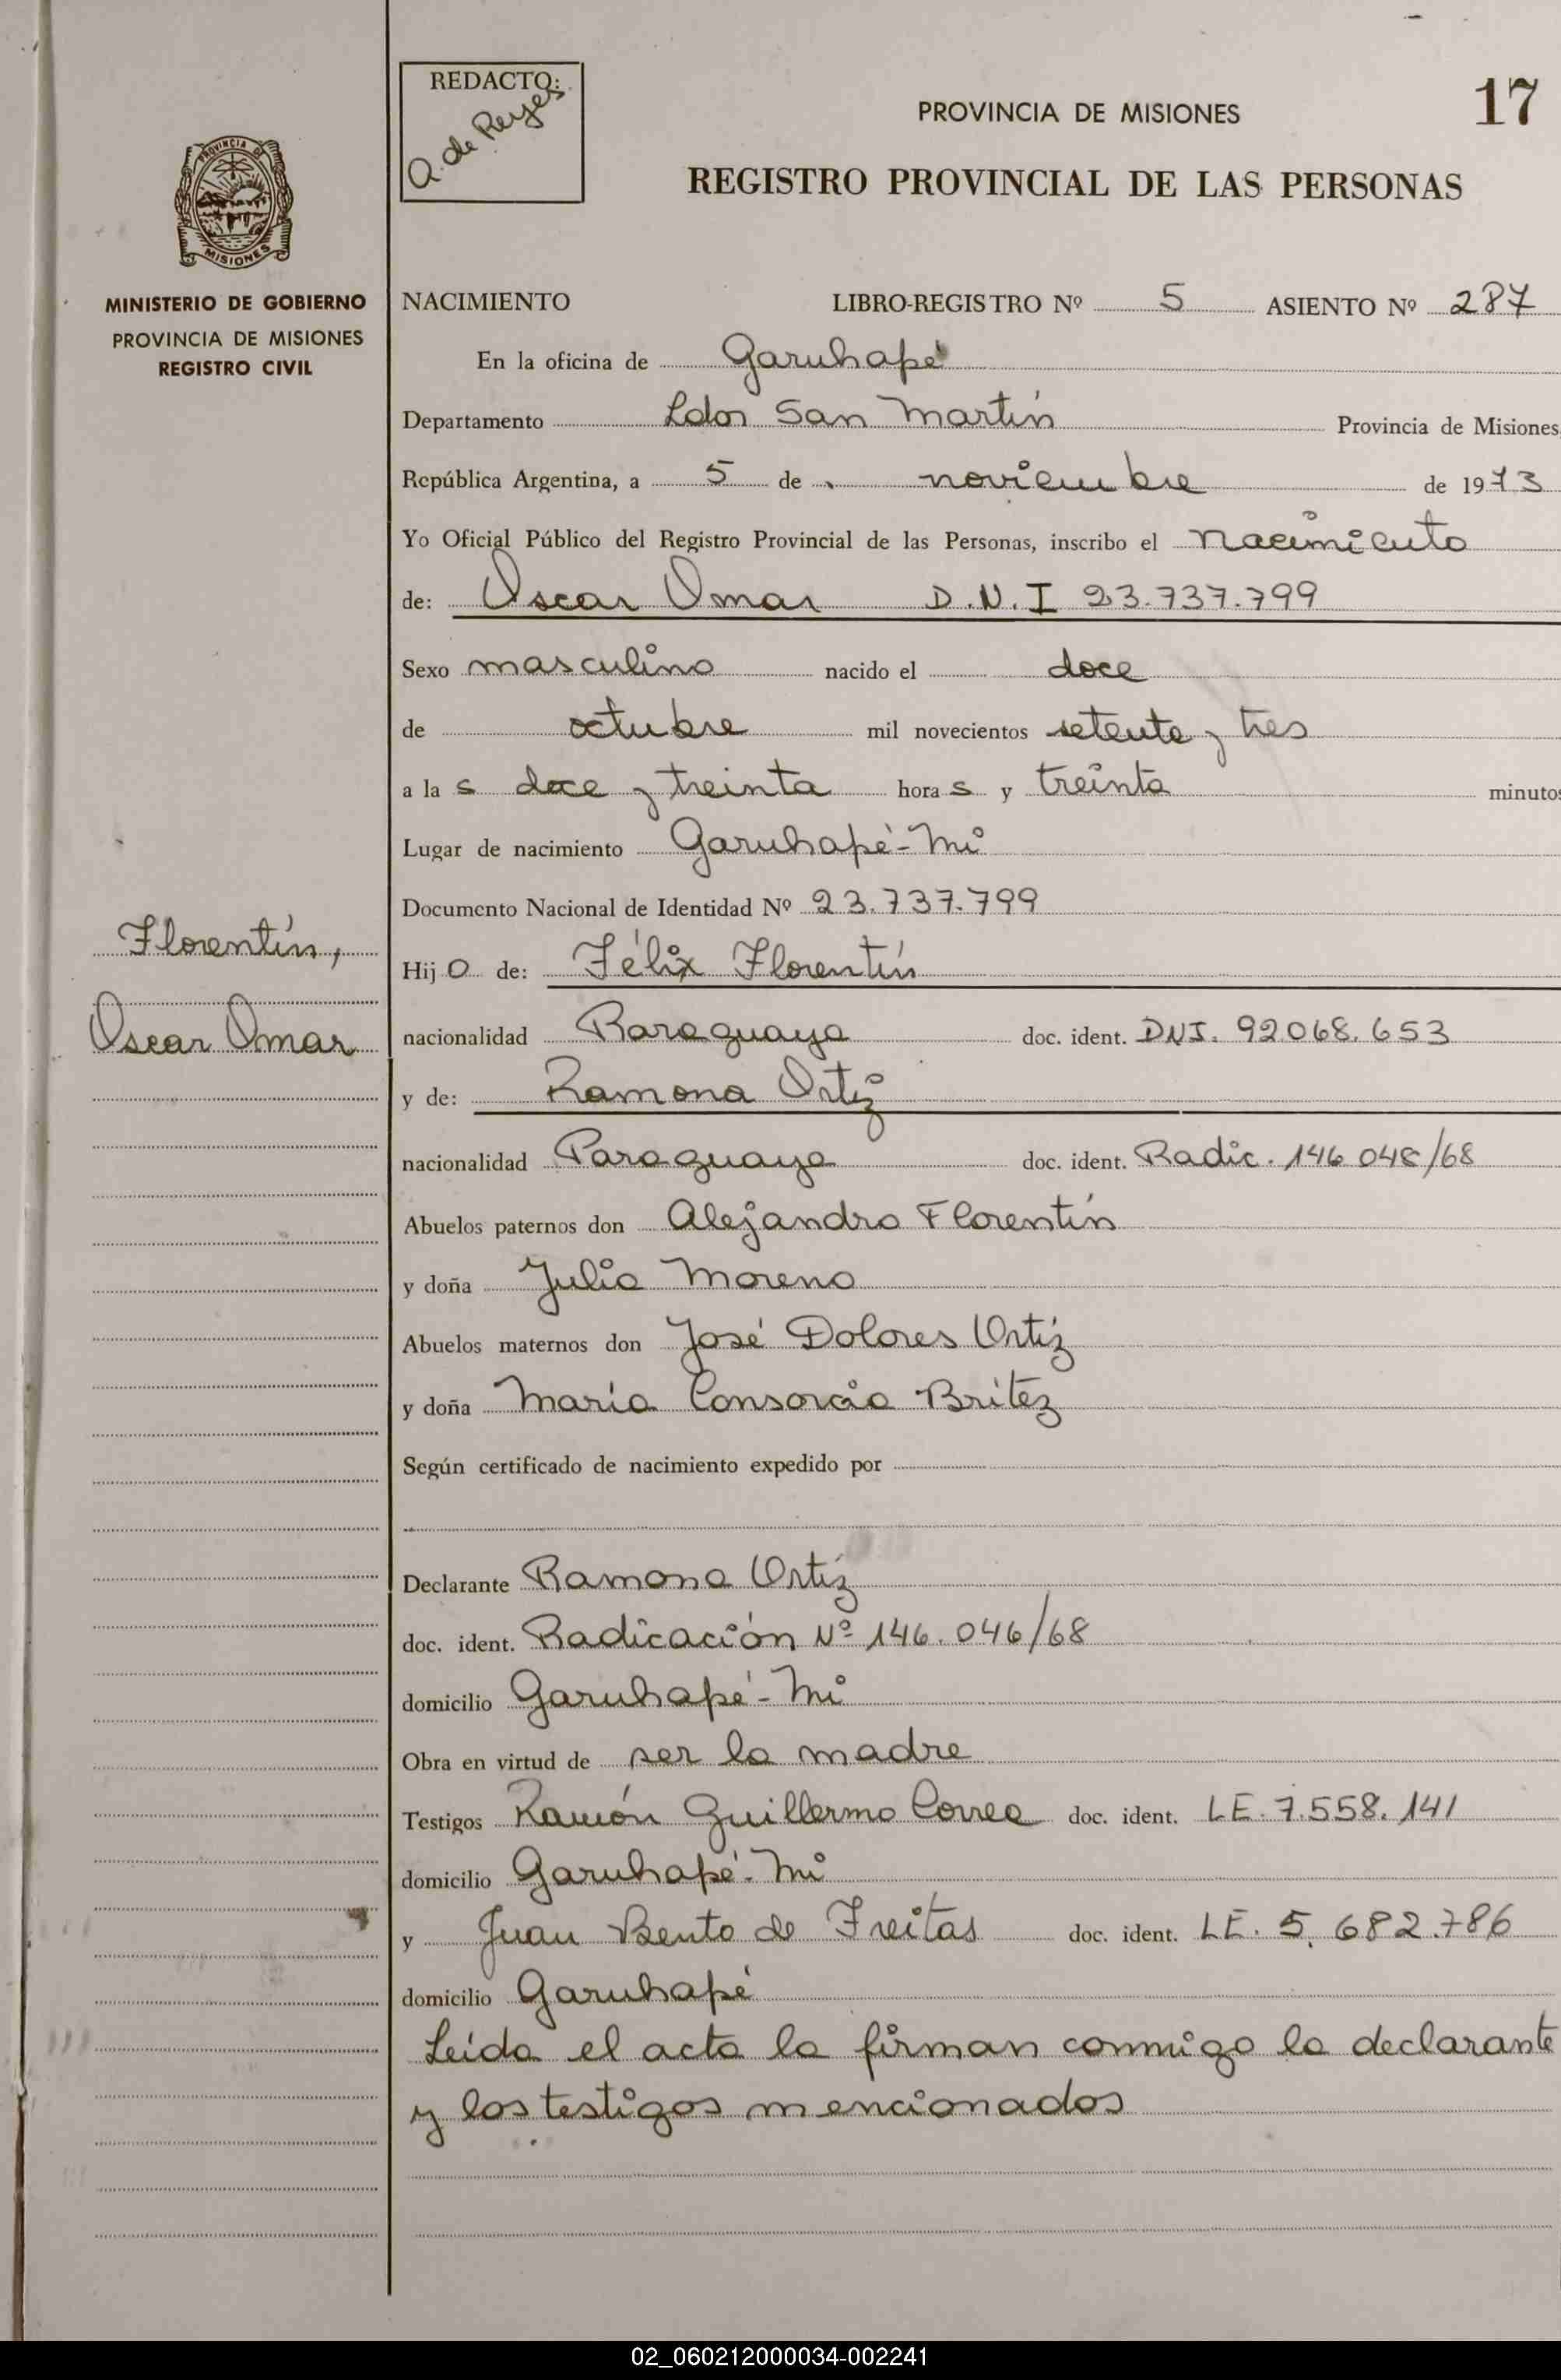 REDACTO:
Q. de Reyes
PROVINCIA DE MISIONES
17
REGISTRO PROVINCIAL DE LAS PERSONAS
PROVINCIA DE
MISIONES
MINISTERIO DE GOBIERNO
PROVINCIA DE MISIONES
REGISTRO CIVIL
NACIMIENTO LIBRO-REGISTRO Nº 5 ASIENTO Nº 287
En la oficina de Garuhapé
Departamento Ldor San Martín Provincia de Misiones
República Argentina, a 5 de noviembre de 1973
Yo Oficial Público del Registro Provincial de las Personas, inscribo el nacimiento
de: Oscar Omar D.N.I 23.737.799
Sexo masculino nacido el doce
de octubre mil novecientos setenta y tres
a la s doce y treinta hora s y treinta minutos
Lugar de nacimiento Garuhapé-Mi
Documento Nacional de Identidad Nº 23.737.799
Florentín,
Hij o de: Félix Florentín
Oscar Omar
nacionalidad Paraguaya doc. ident. DNI. 92.068.653
y de: Ramona Ortiz
nacionalidad Paraguaya doc. ident. Radic. 146 048/68
Abuelos paternos don Alejandro Florentín
y doña Julia Moreno
Abuelos maternos don José Dolores Ortiz
y doña María Consorcia Britez
Según certificado de nacimiento expedido por
Declarante Ramona Ortiz
doc. ident. Radicación Nº 146.046/68
domicilio Garuhapé-Mi
Obra en virtud de ser la madre
Testigos Ramón Guillermo Correa doc. ident. LE. 7.558.141
domicilio Garuhapé-Mi
y Juan Bento de Freitas doc. ident. LE. 5.682.786
domicilio Garuhapé
Leída el acta la firman conmigo la declarante
y los testigos mencionados
02_060212000034-002241